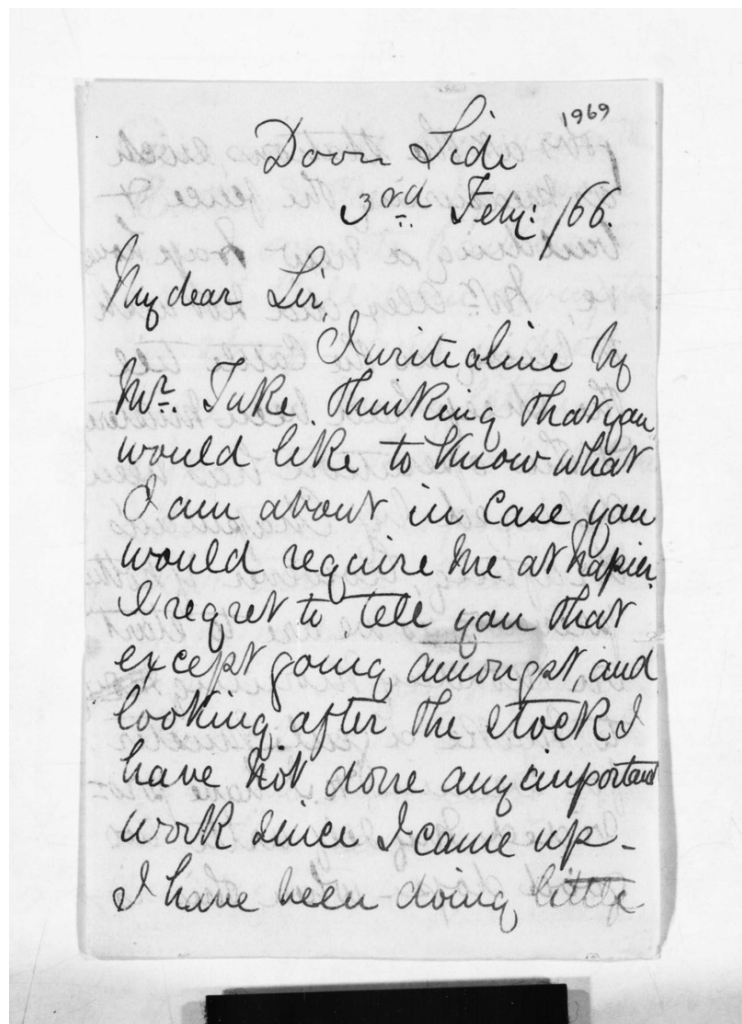 1969
Doon Side
3rd Feby: /66.
My dear Sir,
I write a line by
Mr. Tuke thinking that you
would like to know what
I am about in case you
would require me at Napier.
I regret to tell you that
except going amongst and
looking after the stock I
have not done any important
work since I came up -
I have been doing little